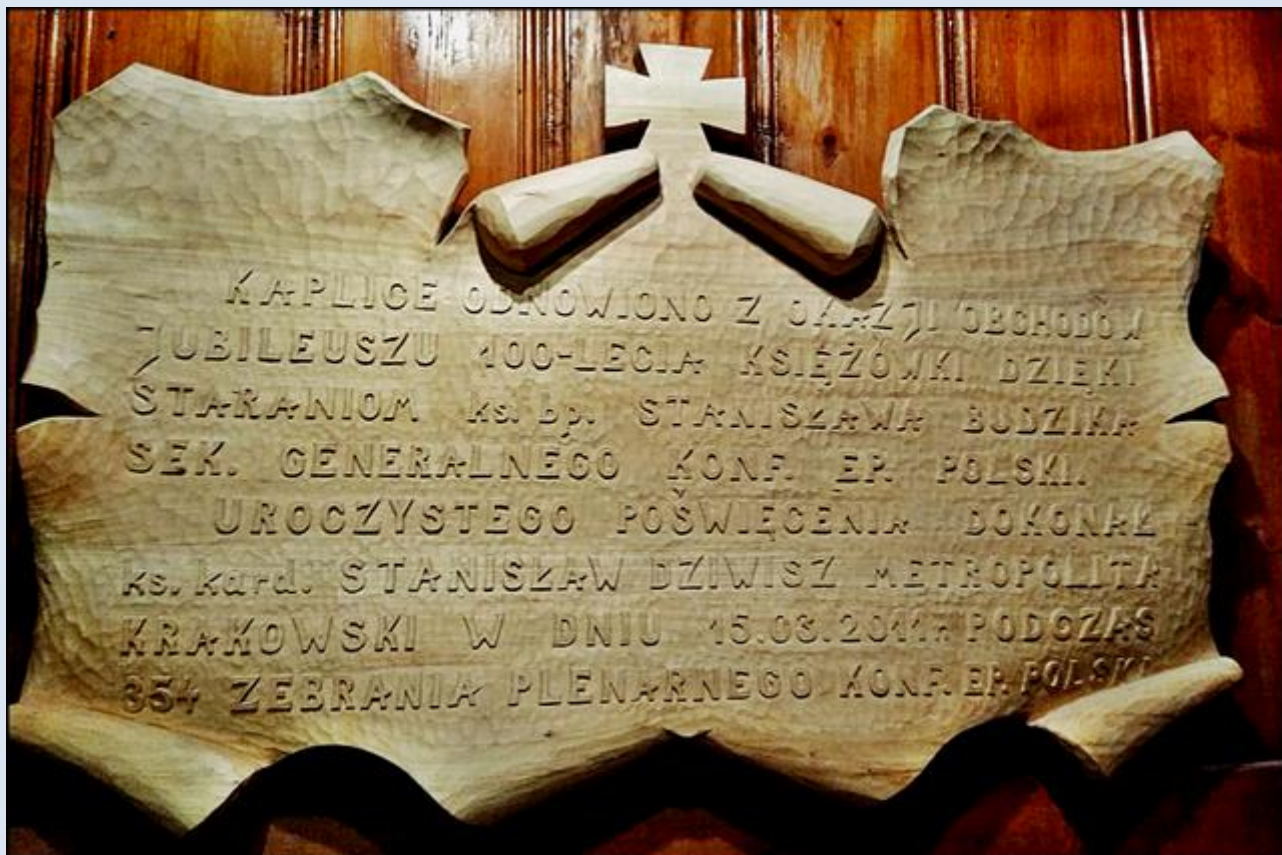 KAPLICE ODNOWIONO Z OKAZJI OBCHODÓW
JUBILEUSZU 100-LECIA KSIĘŻÓWKI DZIĘKI
STARANIOM ks. bp. STANISŁAWA BUDZIKA
SEK. GENERALNEGO KONF. EP. POLSKI.
UROCZYSTEGO POŚWIĘCENIA DOKONAŁ
ks. kard. STANISŁAW DZIWISZ METROPOLITA
KRAKOWSKI W DNIU 15.03.2011r. PODCZAS
354 ZEBRANIA PLENARNEGO KONF. EP. POLSKI